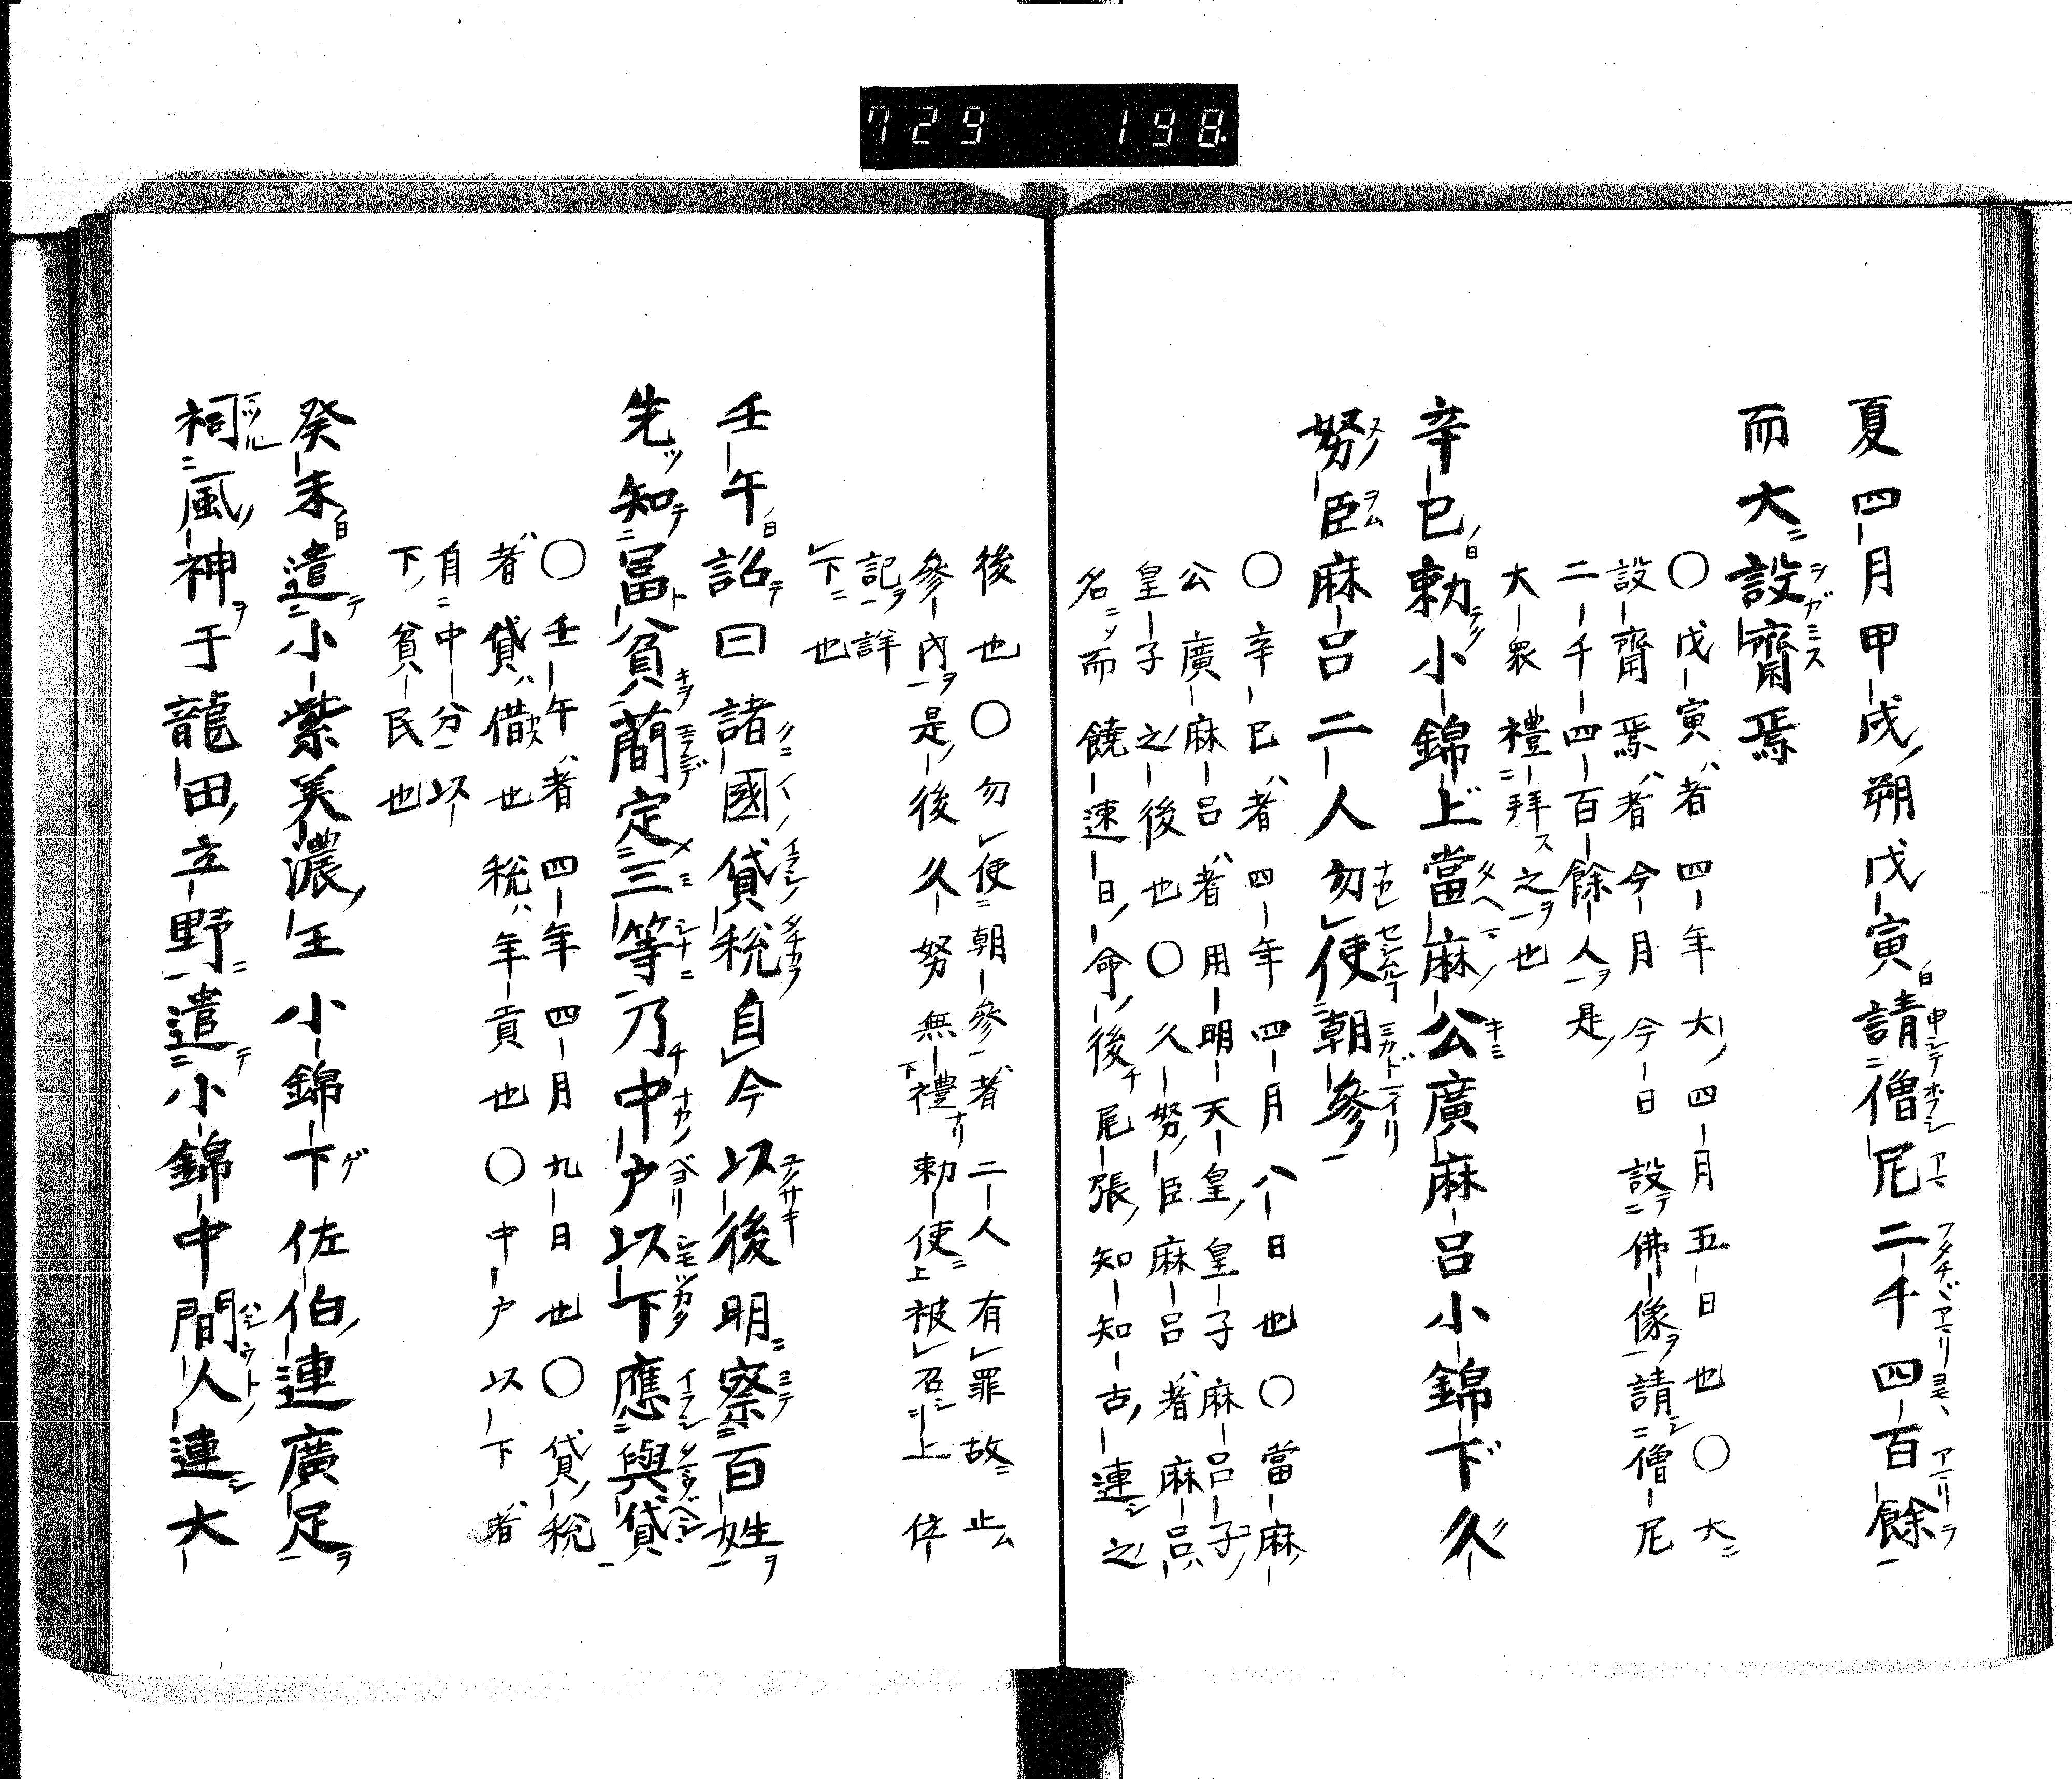 729 198
夏四月甲戌朔戊寅請僧尼二千四百餘
而大設齋焉
〇戊寅者四年大四月五日也〇大
設齋焉者今月今日設佛像請僧尼
二千四百餘人是
大衆禮拜之也
辛巳勅小錦上當麻公廣麻呂小錦下久
努臣麻呂二人勿使朝參
〇辛巳者四年四月八日也〇當麻
公廣麻呂者用明天皇皇子麻呂子
皇子之後也〇久努臣麻呂者麻呂
名而饒速日命後尾張知知古連之
後也〇勿使朝參者二人有罪故止
參內是後久努無禮勅使被召上位
記詳
下也
壬午詔曰諸國貸税自今以後明察百姓
先知冨貧蕑定三等乃中户以下應與貸
〇壬午者四年四月九日也〇貸税
者貸借也税年貢也〇中户以下者
自中分以
下貧民也
癸未遣小紫美濃王小錦下佐伯連廣足
祠風神于龍田立野遣小錦中間人連大